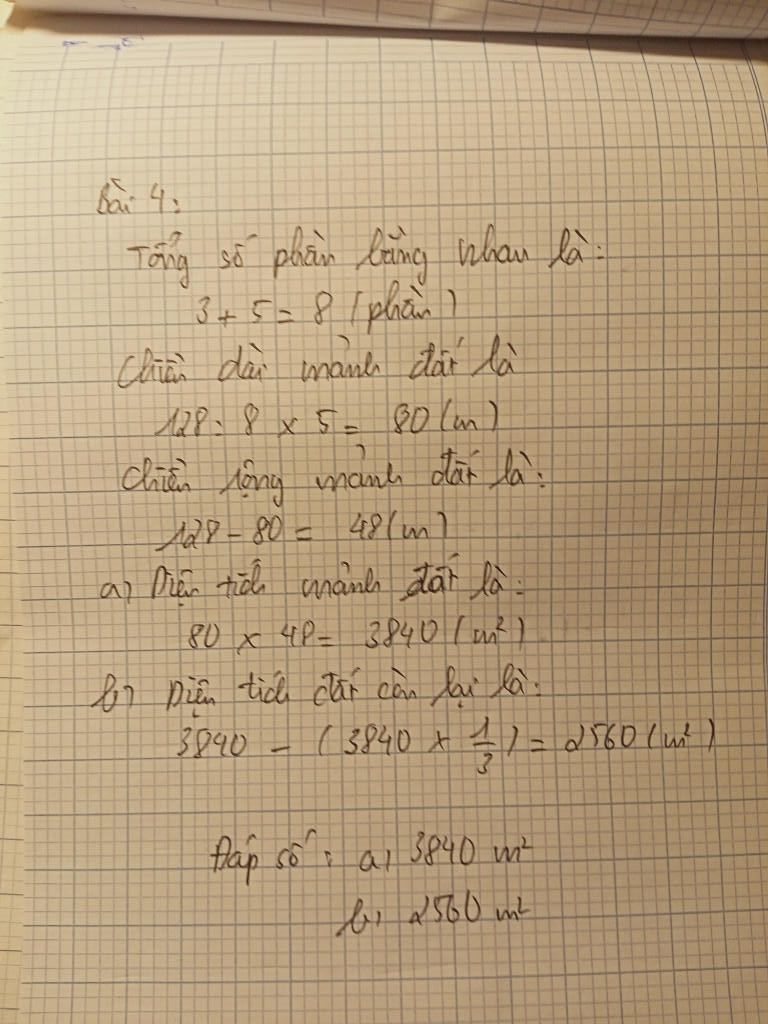 Bài 4:
Tổng số phần bằng nhau là:
3 + 5 = 8 (phần)
Chiều dài mảnh đất là
128 : 8 x 5 = 80 (m)
Chiều rộng mảnh đất là:
128 - 80 = 48 (m)
a) Diện tích mảnh đất là:
80 x 48 = 3840 (m²)
b) Diện tích đất còn lại là:
3840 - (3840 x 1/3) = 2560 (m²)
Đáp số: a) 3840 m²
b) 2560 m²